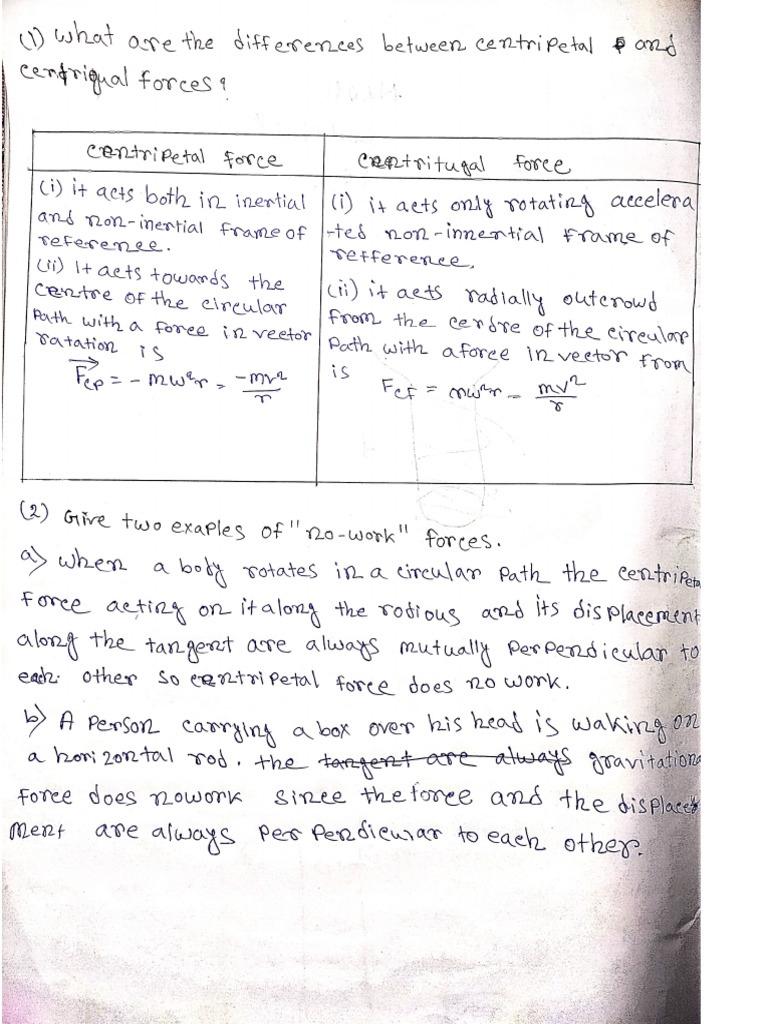 (1) What are the differences between centripetal and
centrigual forces?
centripetal force
(i) it acts both in inertial
and non-inertial frame of
reference.
(ii) It acts towards the
centre of the circular
Path with a force in vector
ratation is
Fcp = - mw²r = -mv²/r
centritugal force
(i) it acts only rotating accelera
-ted non-innertial frame of
refference.
(ii) it acts radially outcrowd
from the cerdre of the circular
Path with a force in vector from
is
Fcf = mw²r = mv²/r
(2) Give two exaples of "no-work" forces.
a) When a body rotates in a circular path the centripeta
force acting on it along the rodious and its displacement
along the tangent are always mutually perpendicular to
each other so centripetal force does no work.
b) A Person carrying a box over his head is waking on
a horizontal rod. the tangent are always gravitationa
force does nowork since the force and the displace
ment are always perpendicular to each other.